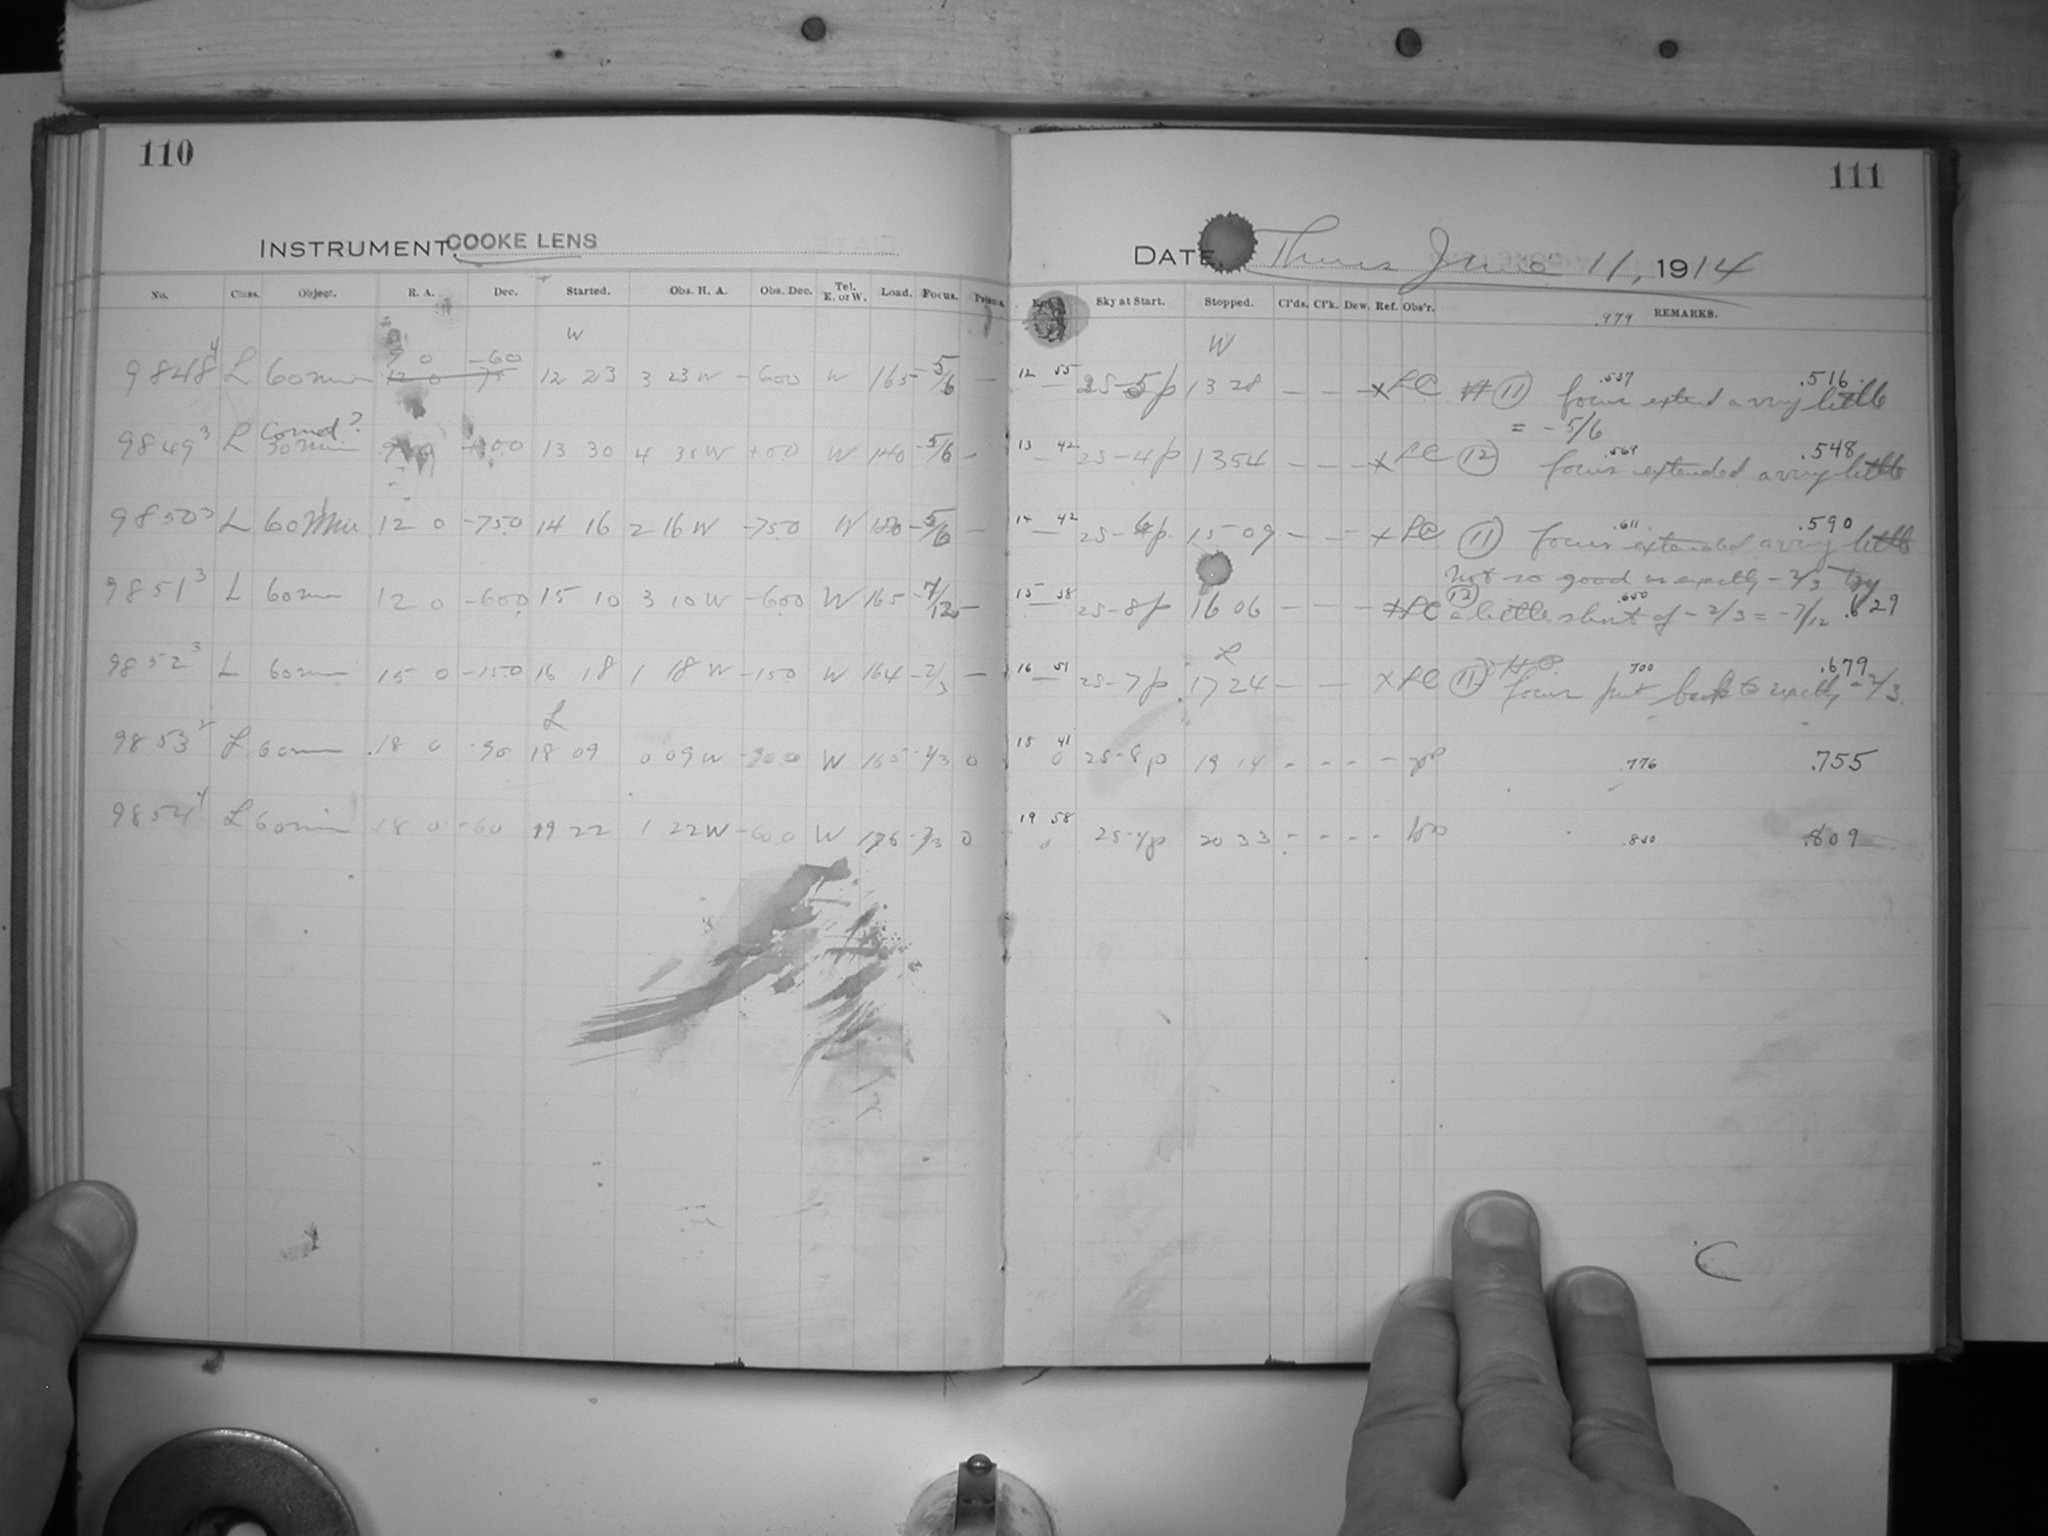 110
111
INSTRUMENT. COOKE LENS
DATE, Thurs June 11, 1914
No. Class. Object. R. A. Dec. Started. Obs. H. A. Obs. Dec. Tel. E. or W. Load. Focus. Prisms.
Sky at Start. Stopped. Cl'ds. Cl'k. Dew. Ref. Obs'r. REMARKS.
.979
W W
9848 4 L 60min 9 0 -60 12 0 75 12 23 3 23 W -600 W 165 -5/6 — 12 55 — 25-5p 13 28 — — — X LC (11) .537 .516
focus extend a very little
= -5/6
9849 3 L Comet? 30min +00 13 30 4 30 W +00 W 140 -5/6 - 13 42 — 25-4p 1354 — — — X LC (12) .564 .548
focus extended a very little
9850 3 L 60Min 12 0 -750 14 16 2 16 W -750 W 180 -5/6 — 14 42 — 25-6p 15 09 — — X LC (11) .611 .590
focus extended a very little
Not so good as exactly -2/3 try
9851 3 L 60min 12 0 -600 15 10 3 10 W -600 W 165 -7/12 — 15 38 — 25-8p 16 06 — — — X LC (12) a little short of -2/3 = -7/12 .650 .629
L
9852 3 L 60min 15 0 -150 16 18 1 18 W -150 W 164 -2/3 — 16 51 — 25-7p 1724 — — X LC (11) .700 .679
focus put back to exactly -2/3.
L
9853 2 L 60min 18 0 -30 18 09 0 09 W -300 W 165 -2/3 0 18 41 0 25-8p 19 14 - - - - .776 .755
9854 4 L 60min 18 0 -60 19 22 1 22W -600 W 176 -2/3 0 19 58 0 25-4p 20 33 - - - - .830 .809
C